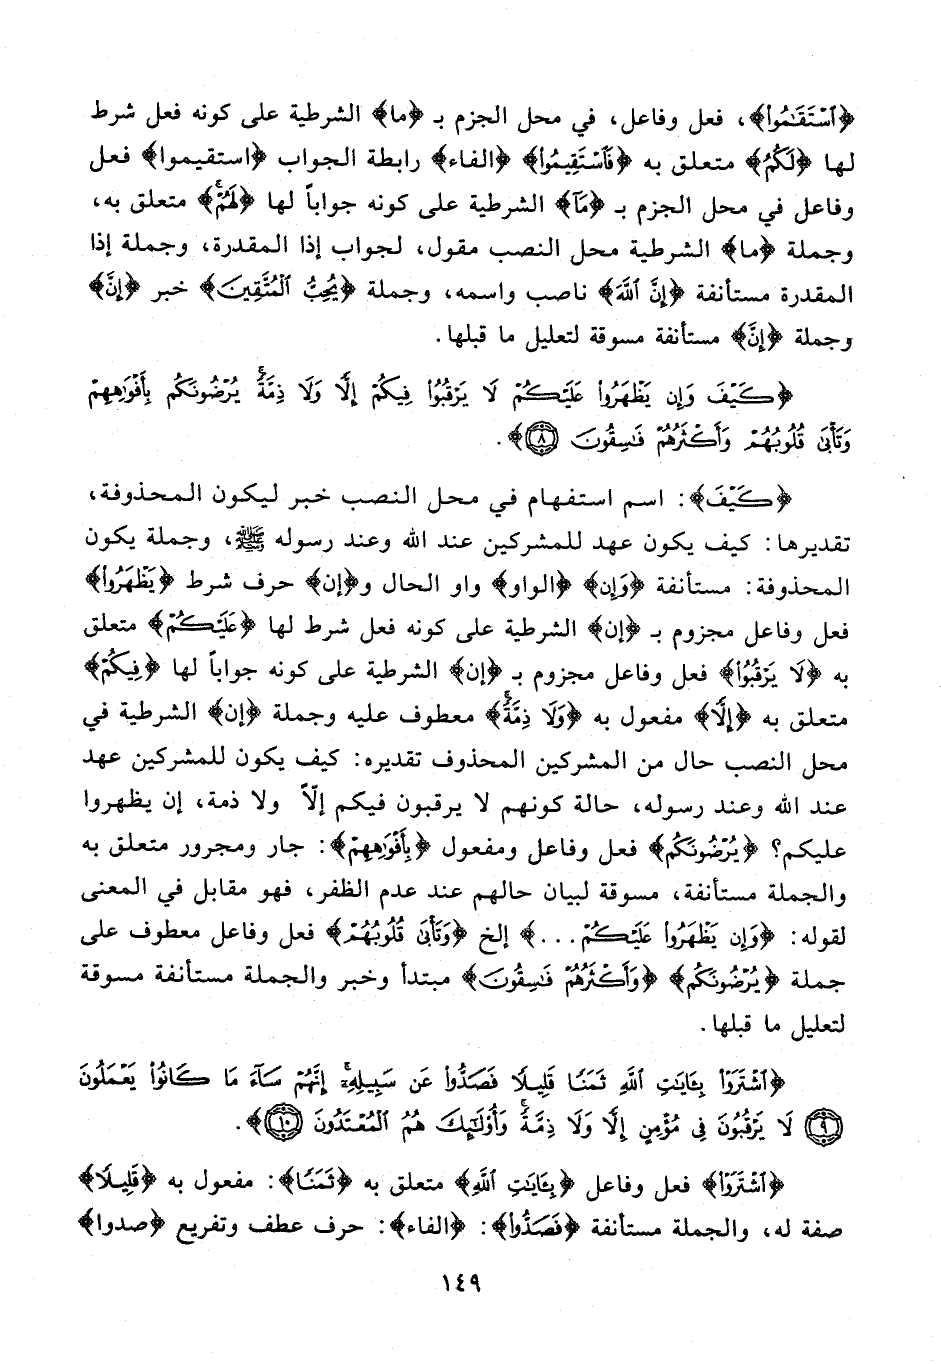 ﴿ٱسْتَقَـٰمُوا۟﴾، فعل وفاعل، في محل الجزم بـ ﴿ما﴾ الشرطية على كونه فعل شرط
لها ﴿لَكُمْ﴾ متعلق به ﴿فَٱسْتَقِيمُوا۟﴾ ﴿الفاء﴾ رابطة الجواب ﴿استقيموا﴾ فعل
وفاعل في محل الجزم بـ ﴿مَآ﴾ الشرطية على كونه جواباً لها ﴿لَهُمْ ۚ﴾ متعلق به،
وجملة ﴿ما﴾ الشرطية محل النصب مقول، لجواب إذا المقدرة، وجملة إذا
المقدرة مستأنفة ﴿إِنَّ ٱللَّهَ﴾ ناصب واسمه، وجملة ﴿يُحِبُّ ٱلْمُتَّقِينَ﴾ خبر ﴿إِنَّ﴾
وجملة ﴿إِنَّ﴾ مستأنفة مسوقة لتعليل ما قبلها.
﴿كَيْفَ وَإِن يَظْهَرُوا۟ عَلَيْكُمْ لَا يَرْقُبُوا۟ فِيكُمْ إِلًّا وَلَا ذِمَّةً ۚ يُرْضُونَكُم بِأَفْوَٰهِهِمْ
وَتَأْبَىٰ قُلُوبُهُمْ وَأَكْثَرُهُمْ فَـٰسِقُونَ ٨﴾.
﴿كَيْفَ﴾: اسم استفهام في محل النصب خبر ليكون المحذوفة،
تقديرها: كيف يكون عهد للمشركين عند الله وعند رسوله ﷺ، وجملة يكون
المحذوفة: مستأنفة ﴿وَإِن﴾ ﴿الواو﴾ واو الحال و﴿إن﴾ حرف شرط ﴿يَظْهَرُوا۟﴾
فعل وفاعل مجزوم بـ ﴿إن﴾ الشرطية على كونه فعل شرط لها ﴿عَلَيْكُمْ﴾ متعلق
به ﴿لَا يَرْقُبُوا۟﴾ فعل وفاعل مجزوم بـ ﴿إن﴾ الشرطية على كونه جواباً لها ﴿فِيكُمْ﴾
متعلق به ﴿إِلًّا﴾ مفعول به ﴿وَلَا ذِمَّةً ۚ﴾ معطوف عليه وجملة ﴿إن﴾ الشرطية في
محل النصب حال من المشركين المحذوف تقديره: كيف يكون للمشركين عهد
عند الله وعند رسوله، حالة كونهم لا يرقبون فيكم إلّاً ولا ذمة، إن يظهروا
عليكم؟ ﴿يُرْضُونَكُم﴾ فعل وفاعل ومفعول ﴿بِأَفْوَٰهِهِمْ﴾: جار ومجرور متعلق به
والجملة مستأنفة، مسوقة لبيان حالهم عند عدم الظفر، فهو مقابل في المعنى
لقوله: ﴿وَإِن يَظْهَرُوا۟ عَلَيْكُمْ...﴾ إلخ ﴿وَتَأْبَىٰ قُلُوبُهُمْ﴾ فعل وفاعل معطوف على
جملة ﴿يُرْضُونَكُم﴾ ﴿وَأَكْثَرُهُمْ فَـٰسِقُونَ﴾ مبتدأ وخبر والجملة مستأنفة مسوقة
لتعليل ما قبلها.
﴿ٱشْتَرَوْا۟ بِـَٔايَـٰتِ ٱللَّهِ ثَمَنًا قَلِيلًا فَصَدُّوا۟ عَن سَبِيلِهِۦٓ ۚ إِنَّهُمْ سَآءَ مَا كَانُوا۟ يَعْمَلُونَ
٩ لَا يَرْقُبُونَ فِى مُؤْمِنٍ إِلًّا وَلَا ذِمَّةً ۚ وَأُو۟لَـٰٓئِكَ هُمُ ٱلْمُعْتَدُونَ ١٠﴾.
﴿ٱشْتَرَوْا۟﴾ فعل وفاعل ﴿بِـَٔايَـٰتِ ٱللَّهِ﴾ متعلق به ﴿ثَمَنًا﴾: مفعول به ﴿قَلِيلًا﴾
صفة له، والجملة مستأنفة ﴿فَصَدُّوا۟﴾: ﴿الفاء﴾: حرف عطف وتفريع ﴿صدوا﴾
١٤٩